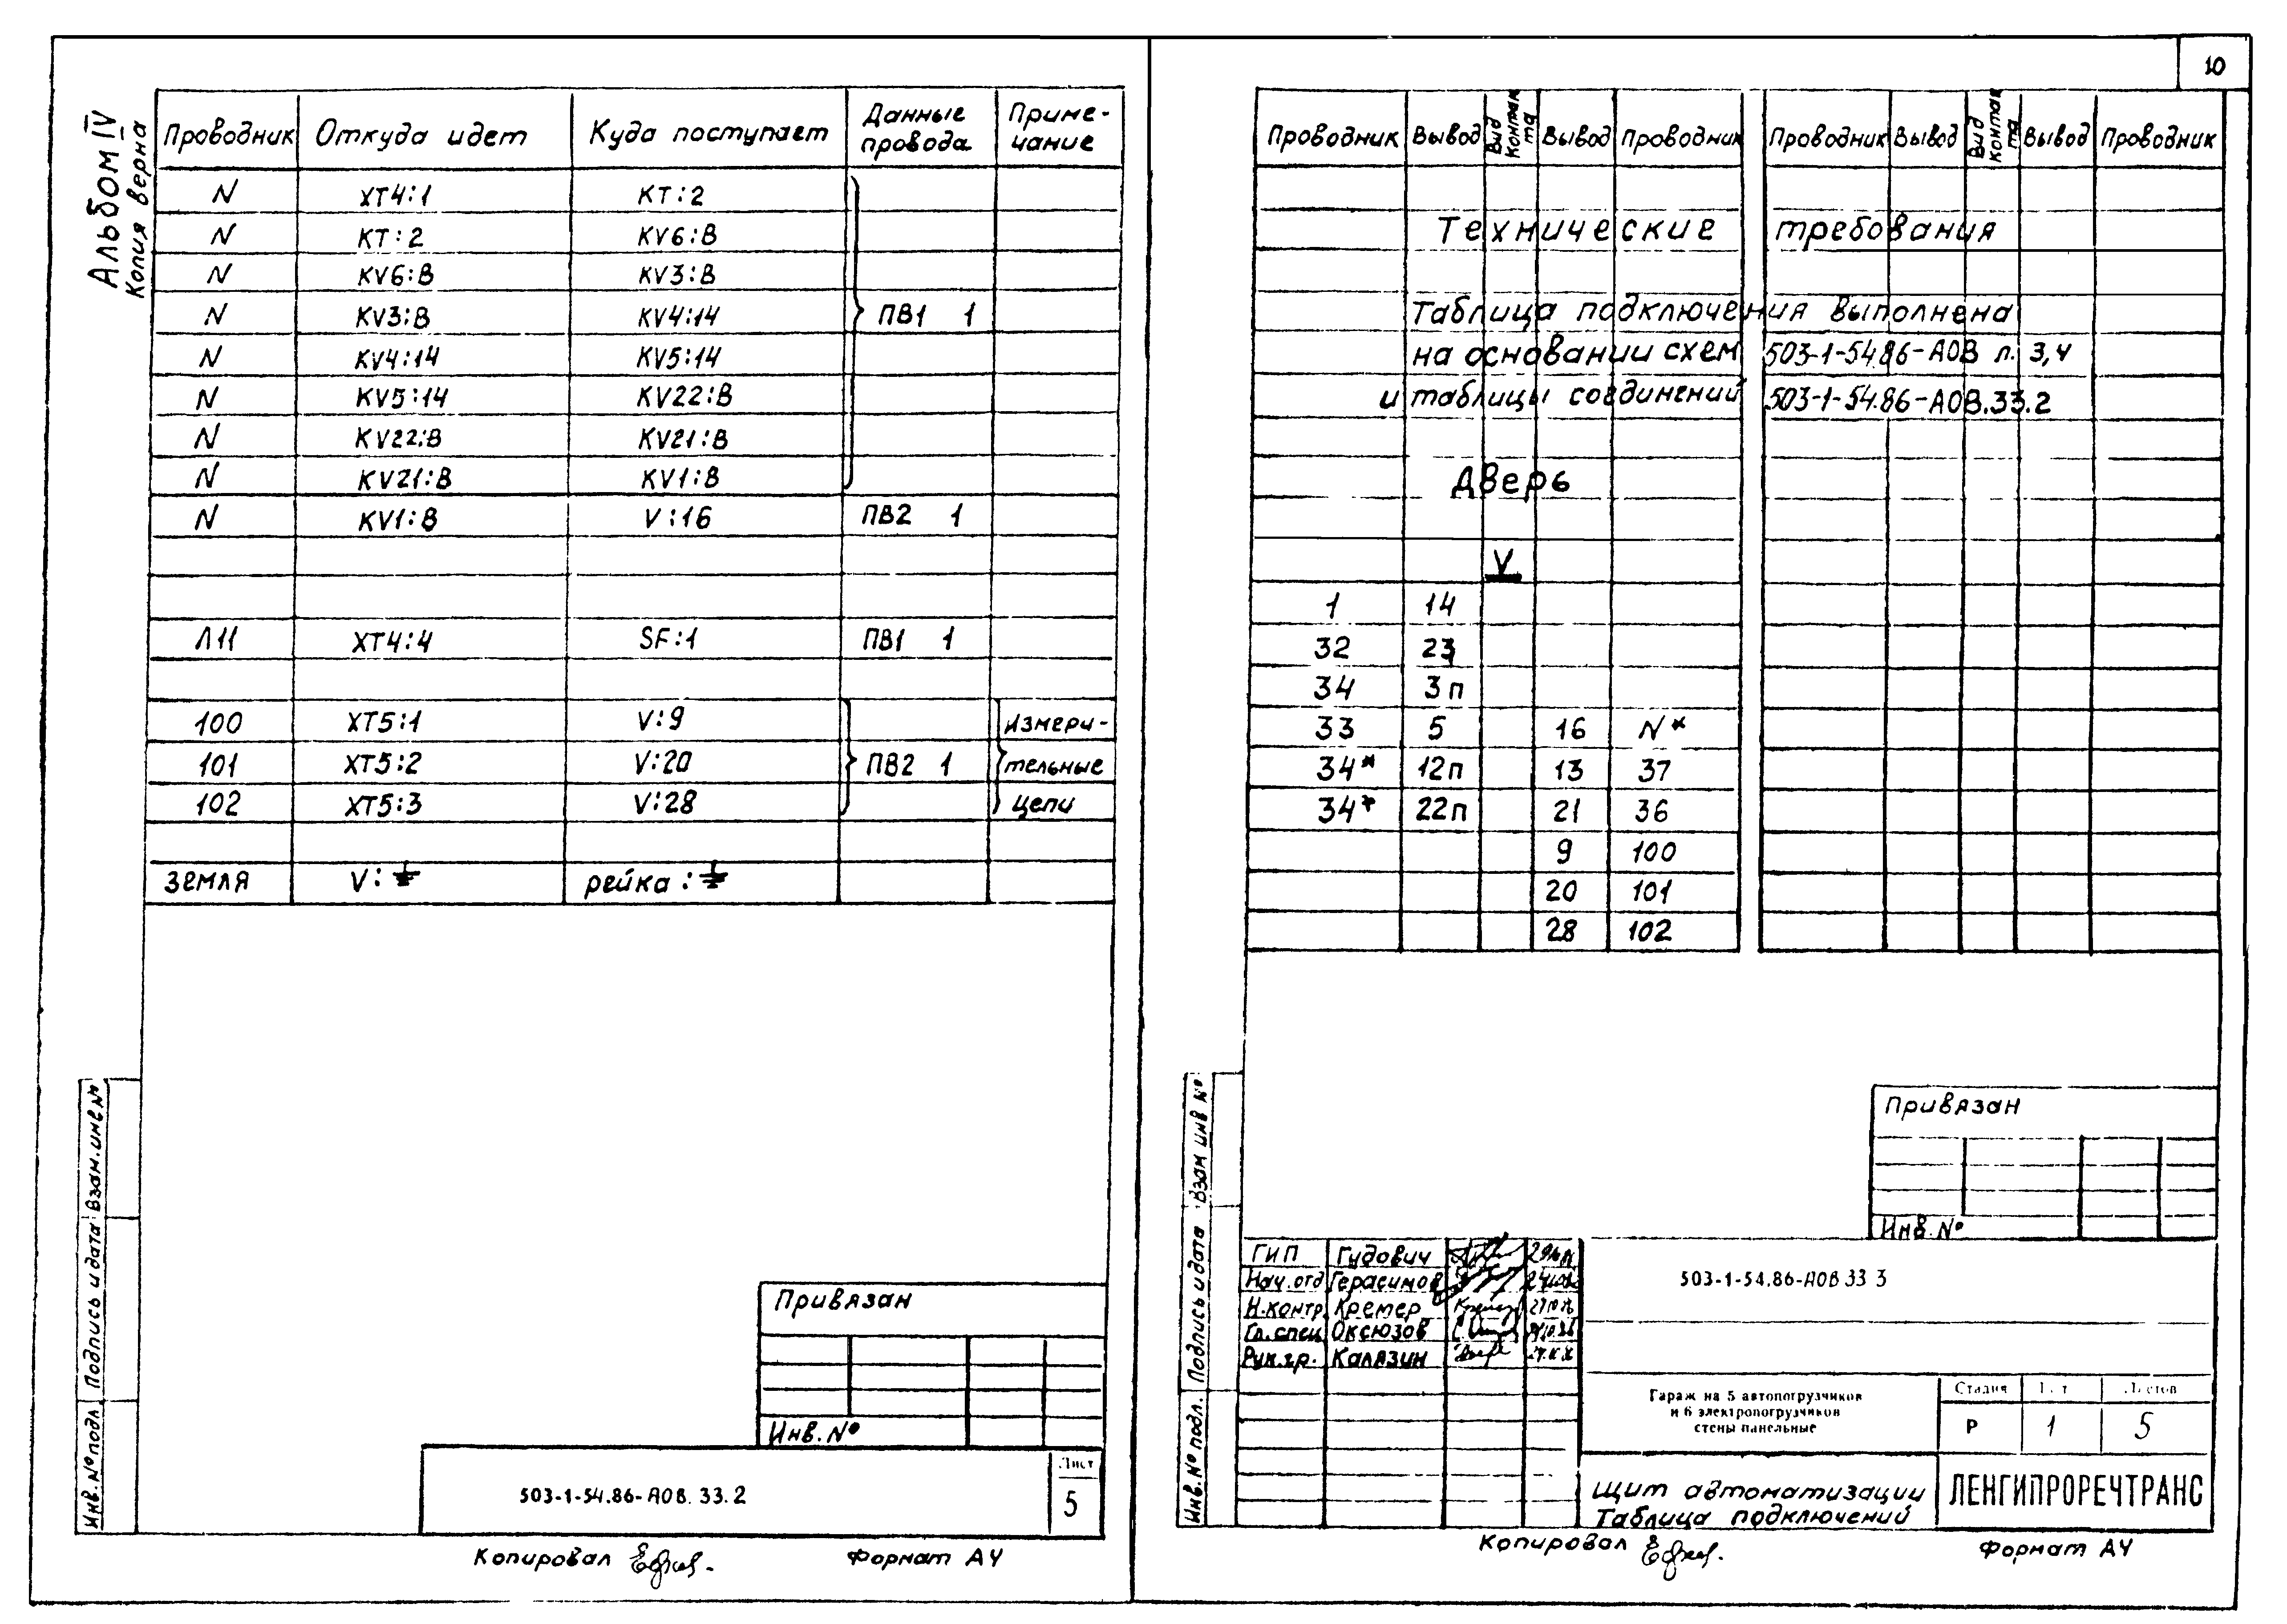 10
Альбом IV
Копия верна
Проводник Откуда идет Куда поступает Данные провода Приме-чание
N XT4:1 KT:2
N KT:2 KV6:B
N KV6:B KV3:B
N KV3:B KV4:14 ПВ1 1
N KV4:14 KV5:14
N KV5:14 KV22:B
N KV22:B KV21:B
N KV21:B KV1:B
N KV1:B V:16 ПВ2 1
Л11 XT4:4 SF:1 ПВ1 1
100 XT5:1 V:9 измери-
101 XT5:2 V:20 ПВ2 1 тельные
102 XT5:3 V:28 цепи
земля V:⏚ рейка:⏚
Привязан
Инв.№
503-1-54.86-АОВ.33.2
Лист
5
Инв.№ подл. Подпись и дата Взам.инв№
Копировал
Формат А4
Проводник Вывод Вид контакта Вывод Проводник Проводник Вывод Вид контакта Вывод Проводник
Технические требования
Таблица подключения выполнена
на основании схем 503-1-54.86-АОВ л. 3,4
и таблицы соединений 503-1-54.86-АОВ.33.2
Дверь
V
1 14
32 23
34 3п
33 5 16 N*
34* 12п 13 37
34* 22п 21 36
9 100
20 101
28 102
Привязан
Инв.№
Инв.№ подл. Подпись и дата Взам инв №
ГИП Гудович
Нач.отд Герасимов
Н.контр. Кремер
Гл.спец Оксюзов
Рук.гр. Калязин
503-1-54.86-АОВ 33 3
Гараж на 5 автопогрузчиков
и 6 электропогрузчиков
стены панельные
Стадия Листов
Р 1 5
Щит автоматизации
Таблица подключений
ЛЕНГИПРОРЕЧТРАНС
Копировал
Формат А4